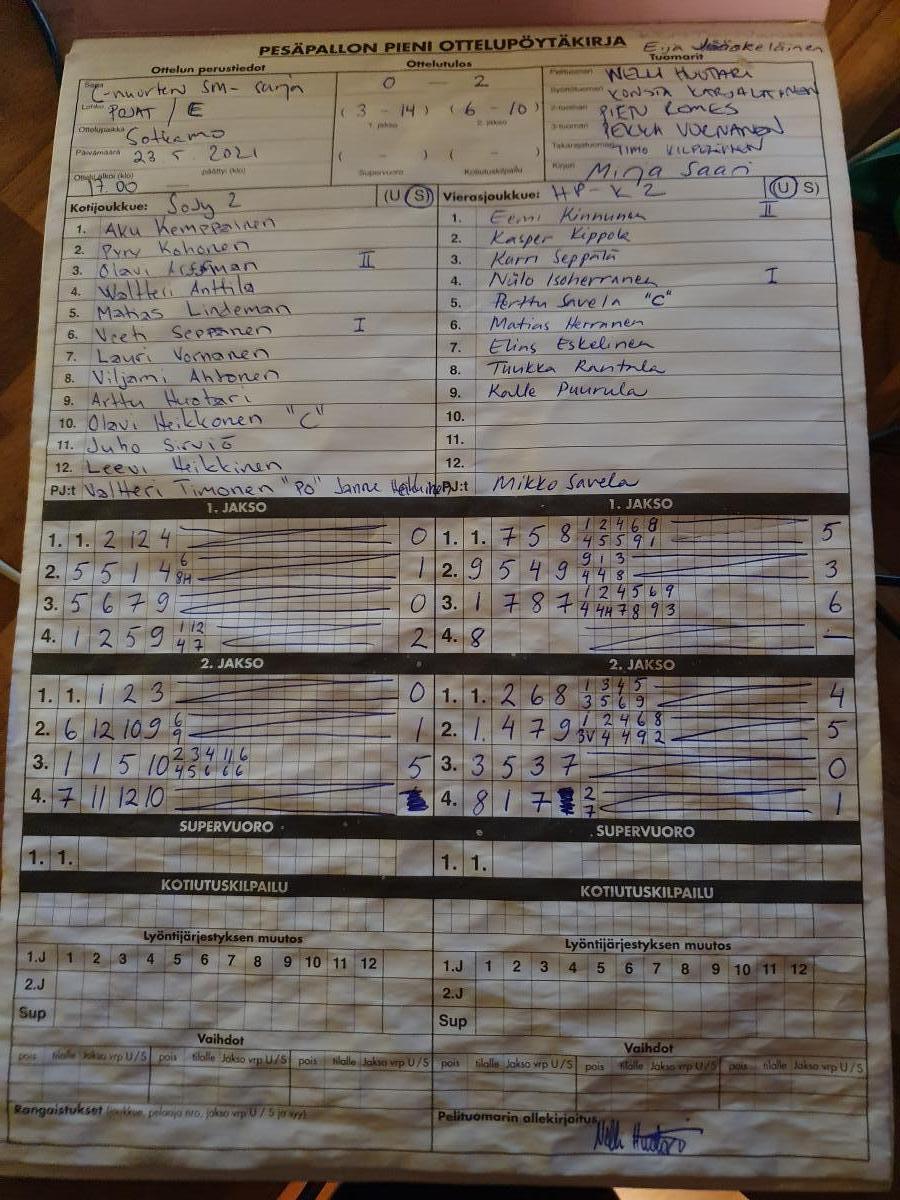 PESÄPALLON PIENI OTTELUPÖYTÄKIRJA
Ottelun perustiedot
Ottelutulos
Tuomarit
Sarja C-nuorten SM-sarja
Lohko POJAT / E
Ottelupaikka Sotkamo
Päivämäärä 23 5. 2021
Ottelu alkoi (klo) 17.00 päättyi (klo)
0 - 2
( 3 - 14 ) ( 6 - 10 )
1. jakso 2. jakso
( - ) ( - )
Supervuoro Kotiutuskilpailu
Pelituomari NELLI HUOTARI
Syöttötuomari KONSTA KARJALAINEN
2-tuomari PIEN ROMES
3-tuomari PEKKA VORNANEN
Takarajatuomari TIMO
Kirjuri Mirja Saari
Kotijoukkue: SoJy 2 (U S)
1. Aku Kemppainen
2. Pyry Kohonen
3. Olavi II
4. Waltteri Anttila
5. Lindeman
6. Veeti Seppänen I
7. Lauri Vornanen
8. Viljami Ahtonen
9. Arttu Huotari
10. Olavi Heikkonen "C"
11. Juho Sirviö
12. Leevi Heikkinen
PJ:t Valtteri Timonen "PO" Janne Heikkinen
Vierasjoukkue: HP-K 2 (U S)
1. Eemi Kinnunen II
2. Kasper Kippola
3. Karri Seppälä
4. Niilo Isoherranen I
5. Perttu Savela "C"
6. Matias Herranen
7. Elias Eskelinen
8. Tuukka Rantala
9. Kalle Puurula
10.
11.
12.
PJ:t Mikko Savela
1. JAKSO
1. 1. 2 12 4 0
2. 5 5 1 4 6 8H 1
3. 5 6 7 9 0
4. 1 2 5 9 1 12 4 7 2
1. JAKSO
1. 1. 7 5 8 1 2 4 6 8 4 5 5 9 1 5
2. 9 5 4 9 9 1 3 4 4 8 3
3. 1 7 8 7 1 2 4 5 6 9 4 4H 7 8 9 3 6
4. 8 —
2. JAKSO
1. 1. 1 2 3 0
2. 6 12 10 9 6 9 1
3. 1 1 5 10 2 3 4 11 6 4 5 6 6 6 5
4. 7 11 12 10
2. JAKSO
1. 1. 2 6 8 1 3 4 5 3 5 6 9 4
2. 1. 4 7 9 1 2 4 6 8 3V 4 4 9 2 5
3. 3 5 3 7 0
4. 8 1 7 2 7 1
SUPERVUORO
1. 1.
SUPERVUORO
1. 1.
KOTIUTUSKILPAILU
KOTIUTUSKILPAILU
Lyöntijärjestyksen muutos
1.J 1 2 3 4 5 6 7 8 9 10 11 12
2.J
Sup
Lyöntijärjestyksen muutos
1.J 1 2 3 4 5 6 7 8 9 10 11 12
2.J
Sup
Vaihdot
pois tilalle Jakso vrp U/S pois tilalle Jakso vrp U/S pois tilalle Jakso vrp U/S
Vaihdot
pois tilalle Jakso vrp U/S pois tilalle Jakso vrp U/S pois tilalle Jakso vrp U/S
Rangaistukset (joukkue, pelaaja nro, jakso vrp U / S ja syy)
Pelituomarin allekirjoitus